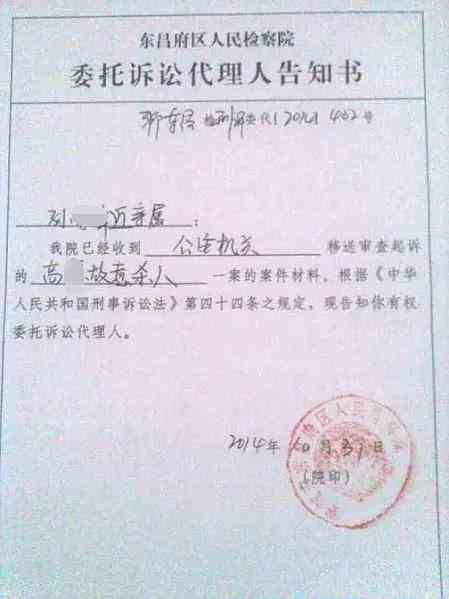 东昌府区人民检察院
委托诉讼代理人告知书
检刑 委代〔2014〕462号
刘 近亲属:
我院已经收到 公安机关 移送审查起诉
的 高 故意杀人 一案的案件材料。根据《中华
人民共和国刑事诉讼法》第四十四条之规定,现告知你有权
委托诉讼代理人。
2014年10月31日
(院印)